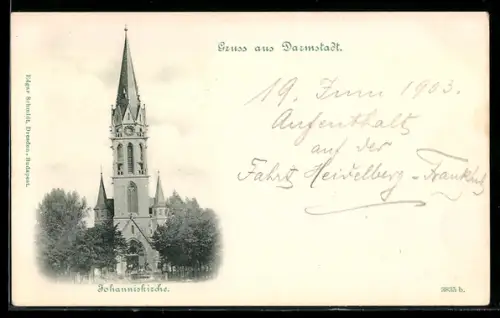 Gruss aus Darmstadt.
19. Juni 1903.
Aufenthalt
auf der
Fahrt Heidelberg - Frankfurt
Edgar Schmidt, Dresden-Budapest.
Johanniskirche.